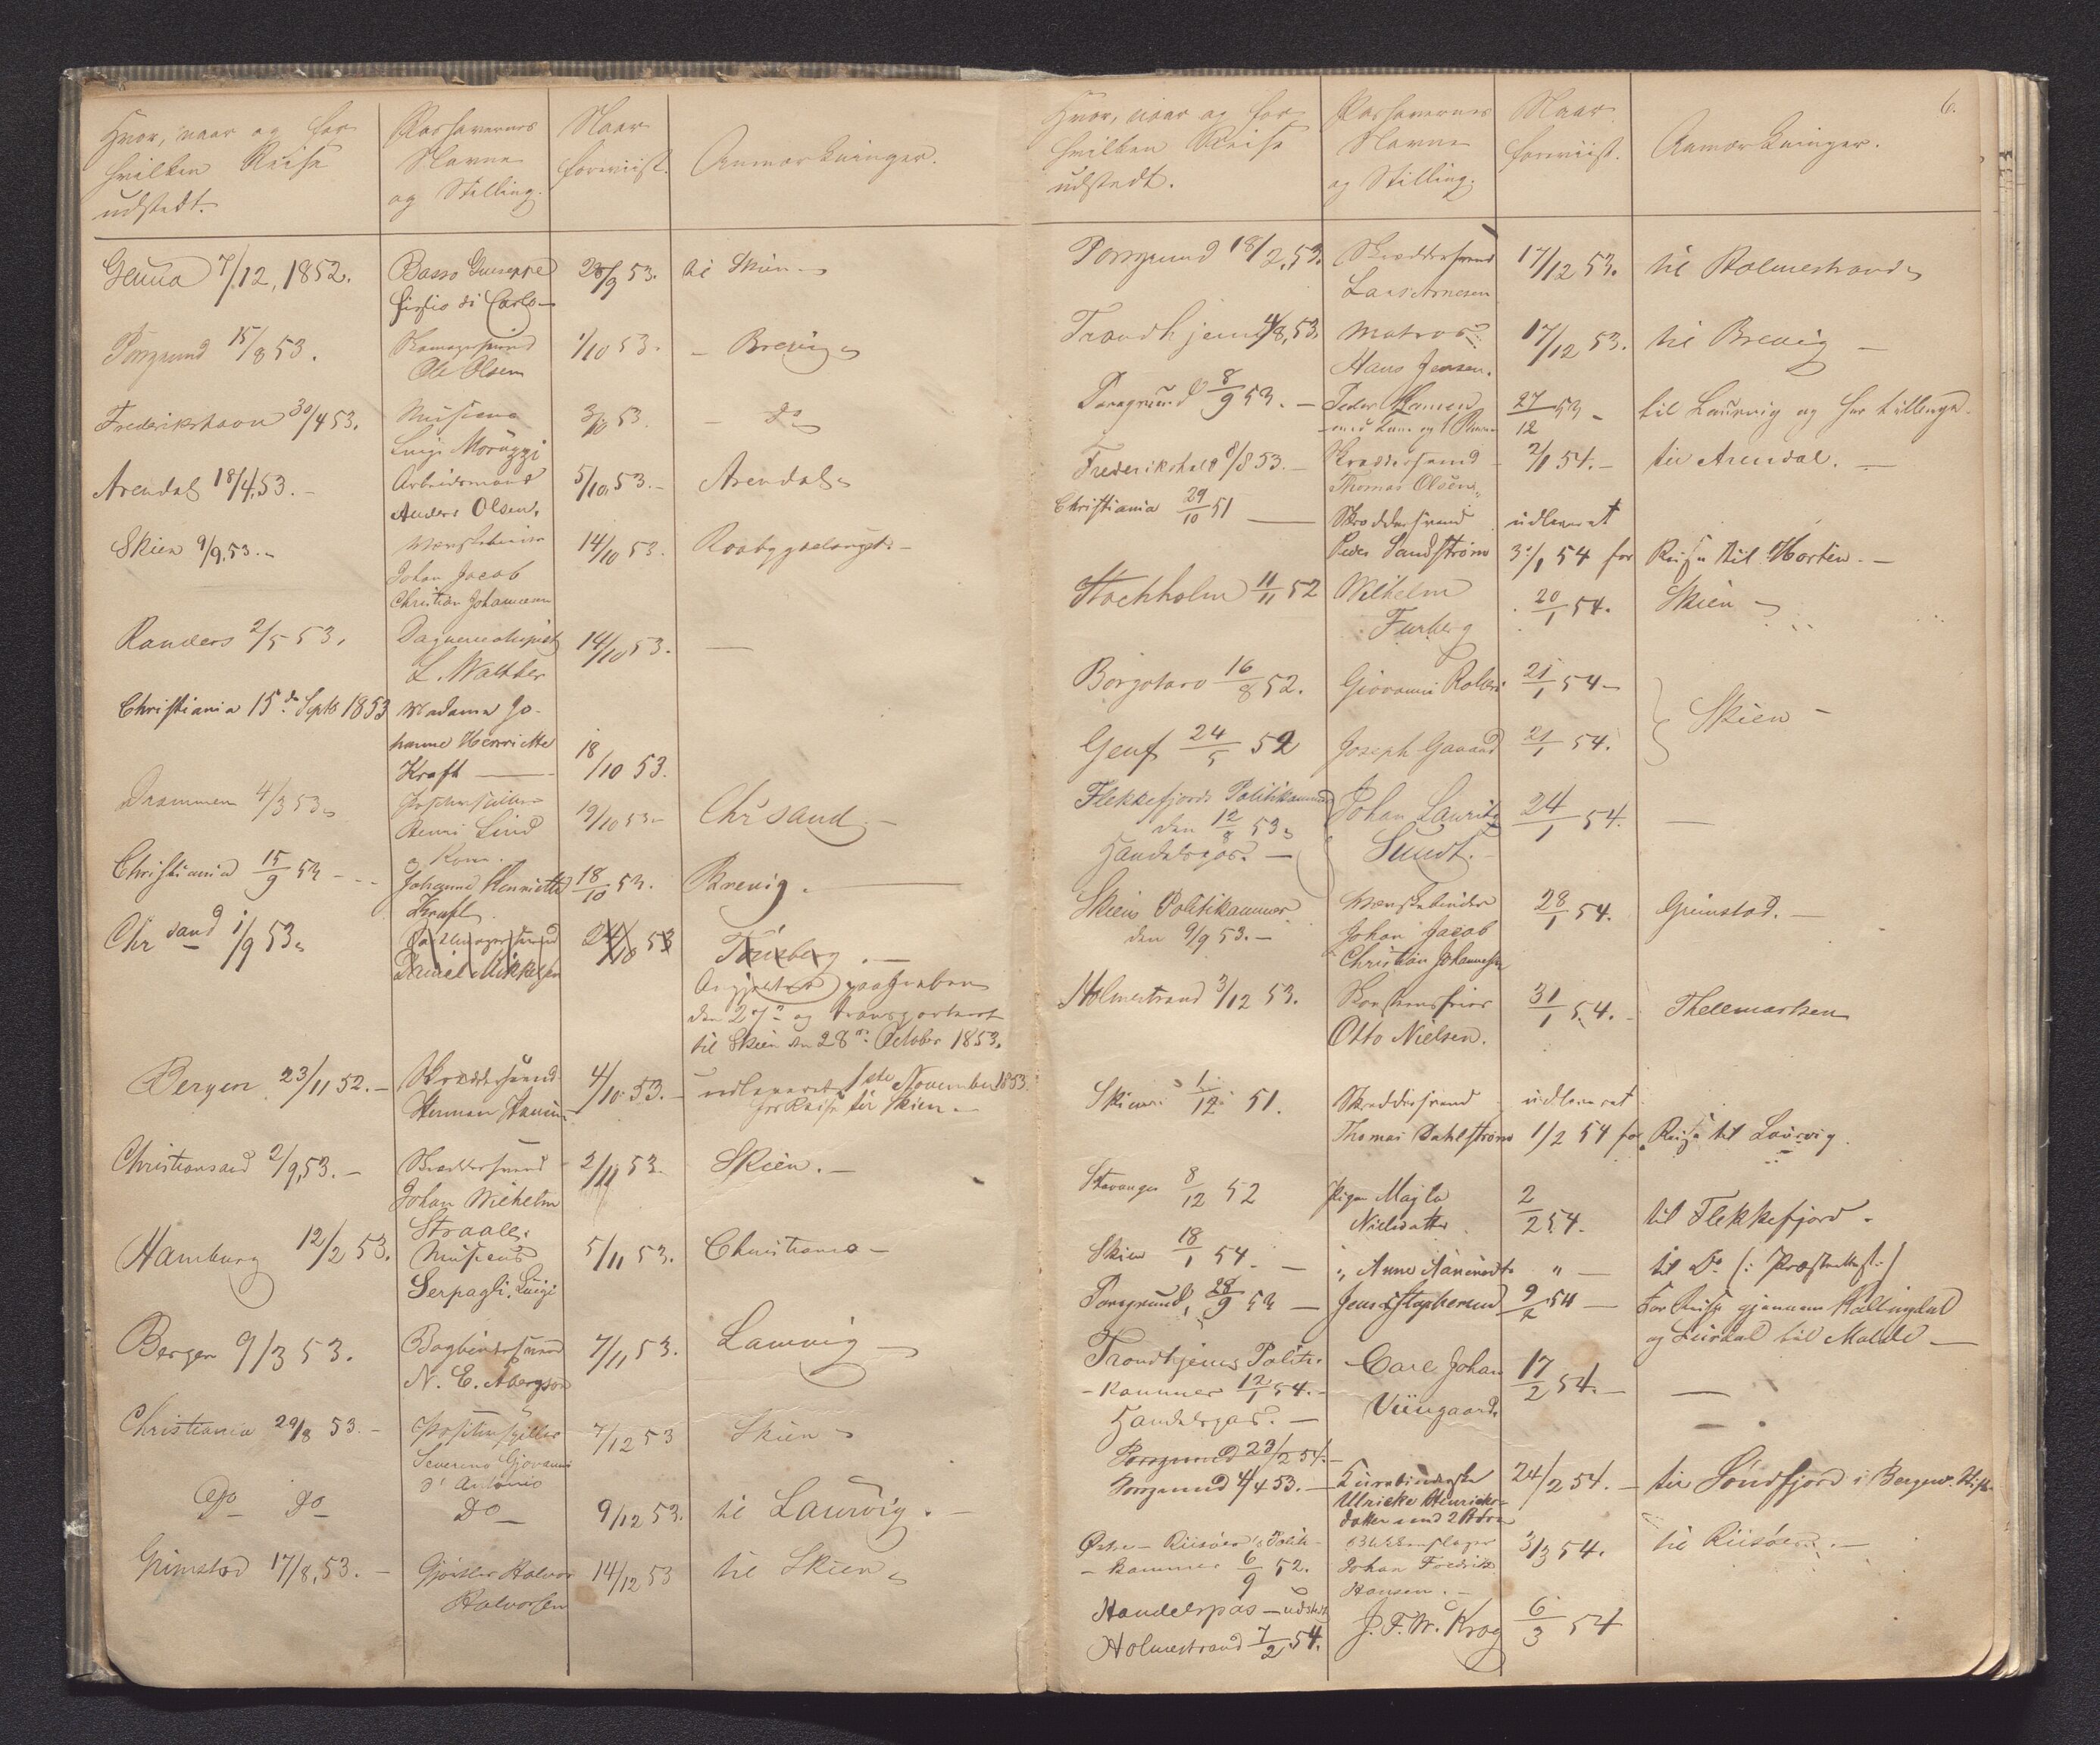 Hvor, naar og for
hvilken Reise
udstedt.
Passhavernes
Navne
og Stilling.
Naar
foreviist.
Anmærkninger.
Genua 7/12, 1852.
Basso Guiseppe
di Carlo
9 53.
til Skien
Porsgrund 15/8 53.
Ole Olsen
1/10 53.
- Brevig
Frederikshavn 30/4 53.
Musicus
Luigi Moruzzi
3/10 53.
- Do
Arendal 18/4, 53. -
Arbeidsmand
Anders Olsen.
5/10, 53. -
Arendal
Skien 9/9, 53. -
Børstebinder
Johan Jacob
Christian Johannesen
14/10 53.
Randers 2/5 53.
Daguerreotypist
L. Walther
14/10 53.
—
Christiania 15de Septb 1853
Madame Jo-
hanne Henriette
Kraft —
18/10 53.
Drammen 4/3 53
Henri Lind
og Kone.
19/10 53 -
Chrsand. -
Christiania 15/9 53 - - -
Johanne Henriette
Kraft
18/10 53.
Brevig. —
Chrsand 1/9 53
Daniel Mikkelsen
24/10 53
Tønsberg. -
den 27de og transporteret
til Skien den 28de October 1853.
Bergen 23/11 52. -
Skræddersvend
Herman Hansen
4/10 53. -
udleveret 1ste November 1853
for Reise til Skien. -
Christiansand 2/9, 53. -
Skræddersvend
Johan Wilhelm
Straale.
2/11 53.
Skien. -
Hamburg 12/2 53.
Musicus
Serpagli, Luigi
5/11 53.
Christiania -
Bergen 9/3 53.
Bogbindersvend
N. E. Abergson
7/11 53.
Laurvig
Christiania 29/8 53. -
Positivspiller
Severino Giovanni
d' Antonio
7/12 53
Skien
Do Do
Do
9/12 53.
til Laurvig. -
Grimstad 17/8, 53. -
Gjørtler Halvor
Halvorsen
14/12 53
til Skien
6.
Hvor, naar og for
hvilken Reise
udstedt.
Passhavernes
Navne
og Stilling.
Naar
foreviist.
Anmærkninger.
Porsgrund 18/2, 53.
Skræddersvend
Lars Arnesen
17/12 53.
til Holmestrand
Trondhjem 4/8, 53.
Matros
Hans Jensen.
17/12 53.
til Brevig -
Porsgrund 8/9 53. -
Peder Hansen
27/12 53 -
til Laurvig og
Frederikshald 8/8 53. -
Skræddersvend
Thomas Olsen
2/1 54. -
til Arendal. -
Christiania 29/10 51 —
Skræddersvend
Peder Sandstrøm
udleveret
1 54 for
Reise til Horten. -
Stockholm 11/11 52
Wilhelm
Furberg
20/1 54.
Skien
Borgotaro 16/8 52.
Giovanni
21/1 54 -
Skien -
Genf 24/5 52
Joseph
21/1 54.
Flekkefjords Politikammer
den 12/8 53
Handelspas. -
Johan Lauritz
Sundt. -
24/1 54.
—
Skiens Politikammer
den 9/9 53. -
Børstebinder
Johan Jacob
Christian Johannesen
28/1 54.
Grimstad. -
Holmestrand 3/12 53.
Skorstensfeier
Otto Nielsen.
31/1 54. -
Thelemarken
Skien 1/12 51.
Skræddersvend
Thomas Dahlstrøm
udleveret
1/2 54 for
Reise til Laurvig.
Stavanger 8/12 52
Pigen
Nielsdatter
2/2 54.
til Flekkefjord.
Skien 18/1 54. -
" Anne
" -
til Do
Porsgrund, 28/9 53 -
9/2 54 -
For Reise gjennem Hallingdal
og til Molde -
Trondhjems Politi-
- kammer 12/1 54. -
Handelspas. -
Carl Johan
Viingaard
17/2 54. -
—
Porsgrund 23/2 54. -
Porsgrund 4/4 53. -
Ulrikke Henriks-
datter med 2 Børn
24/2 54. -
til Søndfjord i Bergens Stift
Øster-Riisøers Politi-
- kammer 6/9 52.
Blikkenslager
Johan Fredrik
Hansen. -
3/3 54.
til Riisøer. -
Handelspas - udstedt
Holmestrand 7/2 54.
J. F. W. Krog
6/3 54